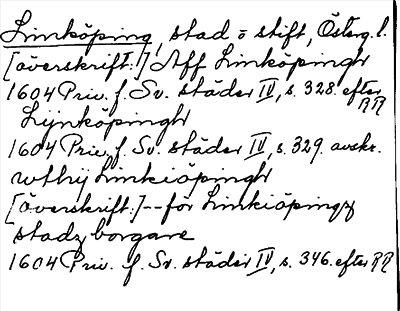 Linköping, stad o stift, Österg. l.
[överskrift:] Aff Linköpingh
1604 Priv. f. Sv. städer IV, s. 328. efter RR
Lijnköpingh
1604 Priv. f. Sv. städer IV, s. 329. avskr.
wthij Linkiöpingh
[överskrift:] -- för Linkiöpingz
stadz borgare
1604 Priv. f. Sv. städer IV, s. 346. efter RR